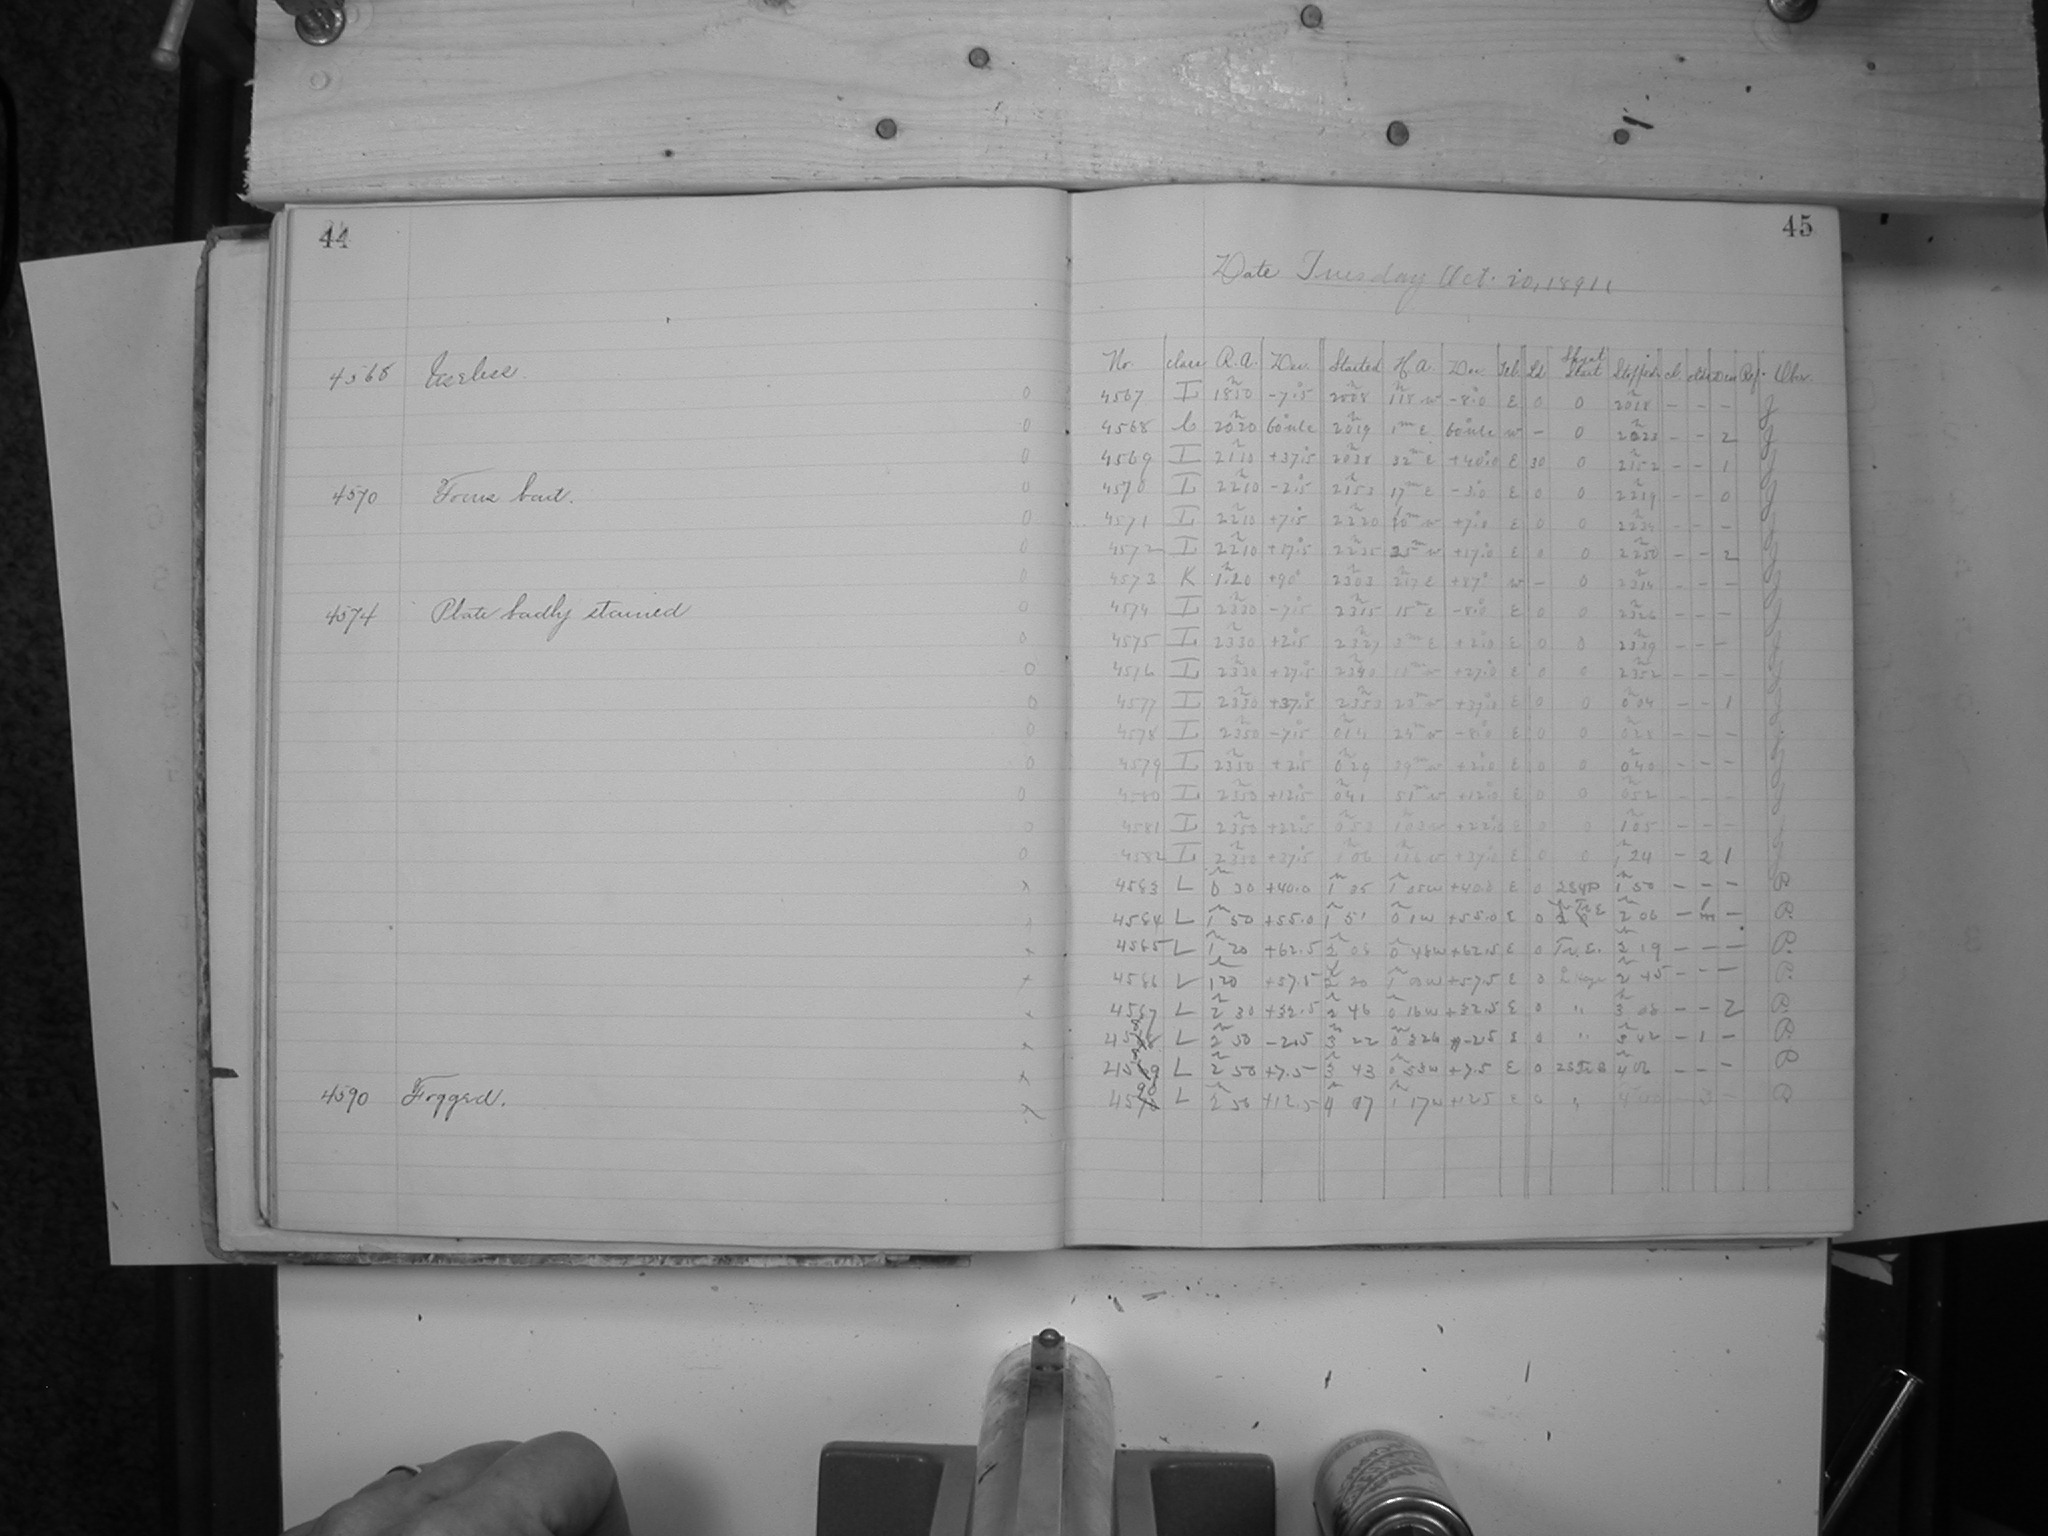 44
4568 Useless.
4570 Focus bad.
4574 Plate badly stained
4590 Fogged.
45
Date Tuesday Oct. 20, 1891.
No. class R.A. Dec. Started H.A. Dec Tel. Ld. Start Stopped cl. Dec Ref. Obs.
0 4567 I 1850 -7.5 2008 -8.0 E 0 0 2018 - - -
0 4568 C 2020 2019 1m E w - 0 2023 - - 2
0 4569 I 2110 +37.5 2038 32m E +40.0 E 30 0 2152 - - 1
0 4570 I 2210 -2.5 2153 17m E -3.0 E 0 0 2219 - - 0
0 4571 I 2210 +7.5 2220 10m w +7.0 E 0 0 2234 - - -
0 4572 I 2210 +17.5 2235 25m w +17.0 E 0 0 2250 - - 2
0 4573 K 1.20 +90° 2303 2.17 E +87° w - 0 2314 - - -
0 4574 I 2330 -7.5 2315 15m E -8.0 E 0 0 2326 - - -
0 4575 I 2330 +2.5 2327 3m E +2.0 E 0 0 2339 - - -
0 4576 I 2330 +27.5 2340 10m w +27.0 E 0 0 2352 - - -
0 4577 I 2330 +37.5 2353 23m w +37.0 E 0 0 004 - - 1
0 4578 I 2350 -7.5 014 24m w -8.0 E 0 0 028 - - -
0 4579 I 2350 +2.5 029 39m w +2.0 E 0 0 040 - - -
0 4580 I 2350 +12.5 041 51m w +12.0 E 0 0 052 - - -
0 4581 I 2350 +22.5 053 103 w +22.0 E 0 0 105 - - -
0 4582 I 2350 +37.5 106 116 w +37.0 E 0 0 1 24 - 2 1
x 4583 L 0 30 +40.0 1 35 1 05w +40.0 E 0 1 50 - - -
4584 L 1 50 +55.0 1 51 0 1w +55.0 E 0 2 06 - -
x 4585 L 1 20 +62.5 2 08 0 48w +62.5 E 0 Tr. E. 2 19 - - -
x 4586 L 1 20 +57.5 2 20 1 00w +57.5 E 0 2 45 - - -
x 4587 L 2 30 +32.5 2 46 0 16w +32.5 E 0 " 3 08 - - 2
x 4588 L 2 50 -2.5 3 22 0 32w -2.5 E 0 " 3 42 - 1 -
x 4589 L 2 50 +7.5 3 43 0 53w +7.5 E 0 4 06 - - -
x 4590 L 2 50 +12.5 4 07 1 17w +12.5 E 0 "